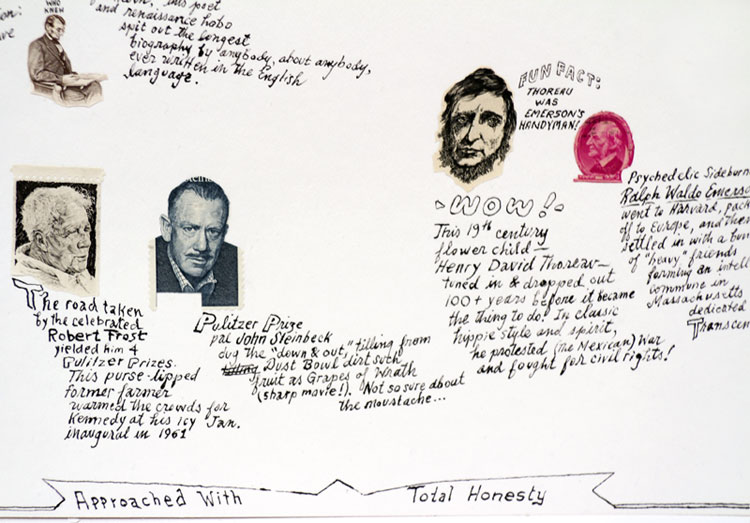 WHO
KNEW
this poet
and renaissance hobo
spit out the longest
biography by anybody, about anybody,
ever written in the English
language.
FUN FACT:
THOREAU
WAS
EMERSON'S
HANDYMAN!
The road taken
by the celebrated
Robert Frost
yielded him 4
Pulitzer Prizes.
This purse-lipped
former farmer
warmed the crowds for
Kennedy at his icy Jan.
inaugural in 1961
Pulitzer Prize
pal John Steinbeck
dug the "down & out," tilling from
Dust Bowl dirt such
fruit as Grapes of Wrath
(sharp movie!). Not so sure about
the moustache...
WOW!
This 19th century
flower child—
Henry David Thoreau—
tuned in & dropped out
100+ years before it became
the thing to do! In classic
hippie style and spirit,
he protested (the Mexican) War
and fought for civil rights!
Psychedelic Sideburn
Ralph Waldo Emerso
went to Harvard, pack
off to Europe, and then
settled in with a bun
of "heavy" friends
forming an intell
commune in
Massachusetts
dedicated
Transcen
Approached With Total Honesty